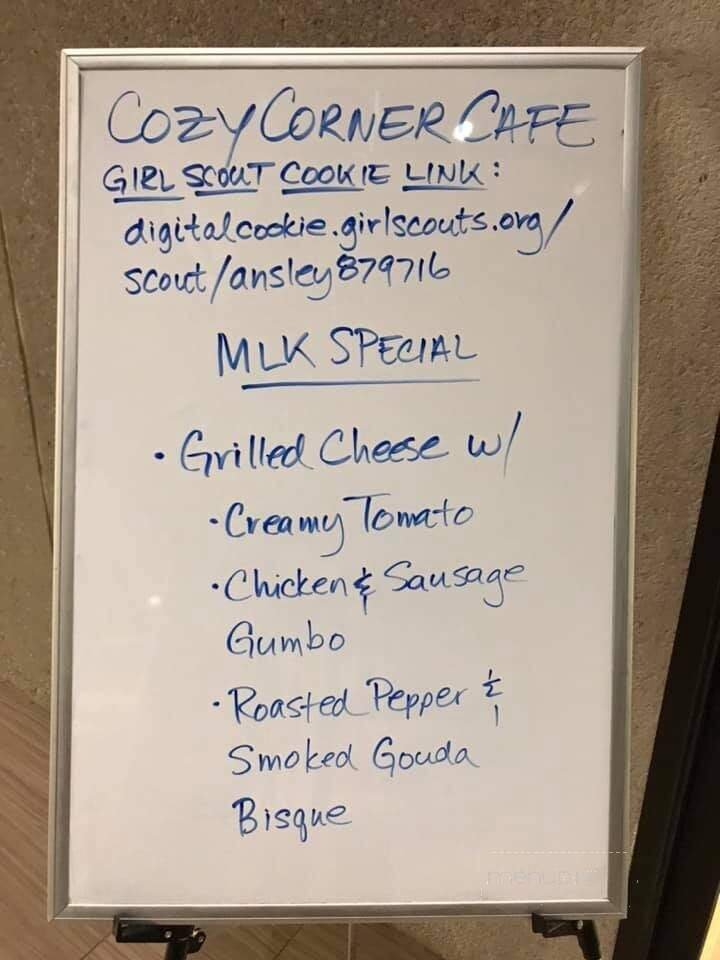 COZY CORNER CAFE
GIRL SCOUT COOKIE LINK:
digitalcookie.girlscouts.org/
scout/ansley879716
MLK SPECIAL
• Grilled Cheese w/
• Creamy Tomato
• Chicken & Sausage
Gumbo
• Roasted Pepper &
Smoked Gouda
Bisque